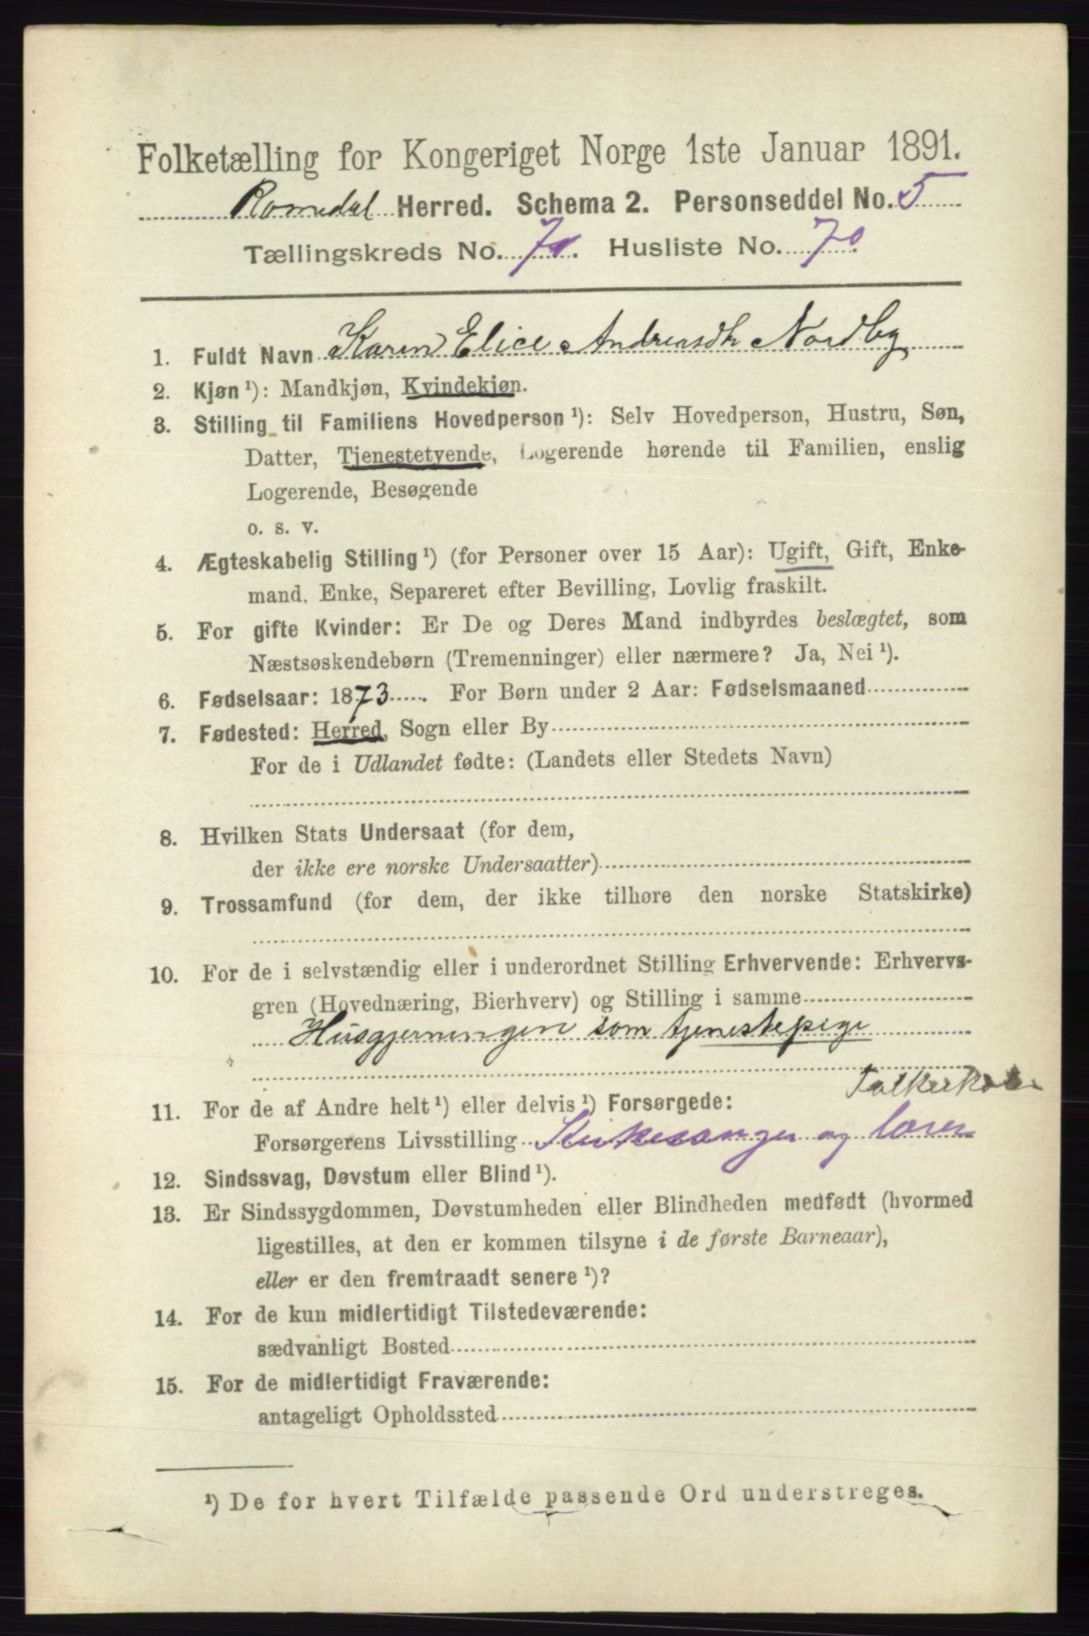 Folketælling for Kongeriget Norge 1ste Januar 1891.
Romedal Herred. Schema 2. Personseddel No. 5
Tællingskreds No. 7. Husliste No. 70
1. Fuldt Navn Karen Elice Andreasdtr Nordby
2. Kjøn ¹): Mandkjøn, Kvindekjøn.
3. Stilling til Familiens Hovedperson ¹): Selv Hovedperson, Hustru, Søn,
Datter, Tjenestetyende, Logerende hørende til Familien, enslig
Logerende, Besøgende
o. s. v.
4. Ægteskabelig Stilling ¹) (for Personer over 15 Aar): Ugift, Gift, Enke-
mand, Enke, Separeret efter Bevilling, Lovlig fraskilt.
5. For gifte Kvinder: Er De og Deres Mand indbyrdes beslægtet, som
Næstsøskendebørn (Tremenninger) eller nærmere? Ja, Nei ¹).
6. Fødselsaar: 1873. For Børn under 2 Aar: Fødselsmaaned
7. Fødested: Herred, Sogn eller By
For de i Udlandet fødte: (Landets eller Stedets Navn)
8. Hvilken Stats Undersaat (for dem,
der ikke ere norske Undersaatter)
9. Trossamfund (for dem, der ikke tilhøre den norske Statskirke)
10. For de i selvstændig eller i underordnet Stilling Erhvervende: Erhvervs-
gren (Hovednæring, Bierhverv) og Stilling i samme
Husgjerningen som tjenestepige
11. For de af Andre helt ¹) eller delvis ¹) Forsørgede:
Forsørgerens Livsstilling Kirkesanger og lærer
12. Sindssvag, Døvstum eller Blind ¹).
13. Er Sindssygdommen, Døvstumheden eller Blindheden medfødt (hvormed
ligestilles, at den er kommen tilsyne i de første Barneaar),
eller er den fremtraadt senere ¹)?
14. For de kun midlertidigt Tilstedeværende:
sædvanligt Bosted
15. For de midlertidigt Fraværende:
antageligt Opholdssted
¹) De for hvert Tilfælde passende Ord understreges.